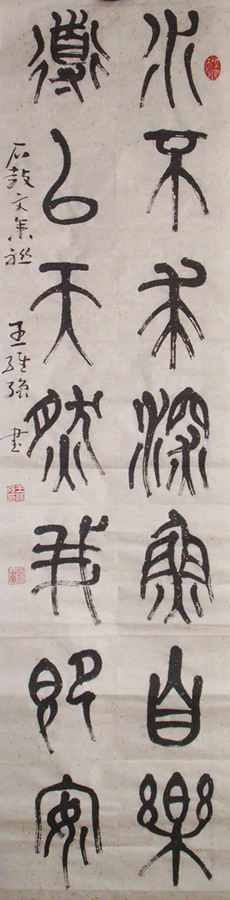 水不求深魚自樂
導以天然我即安
石鼓文集聯 王維強 書